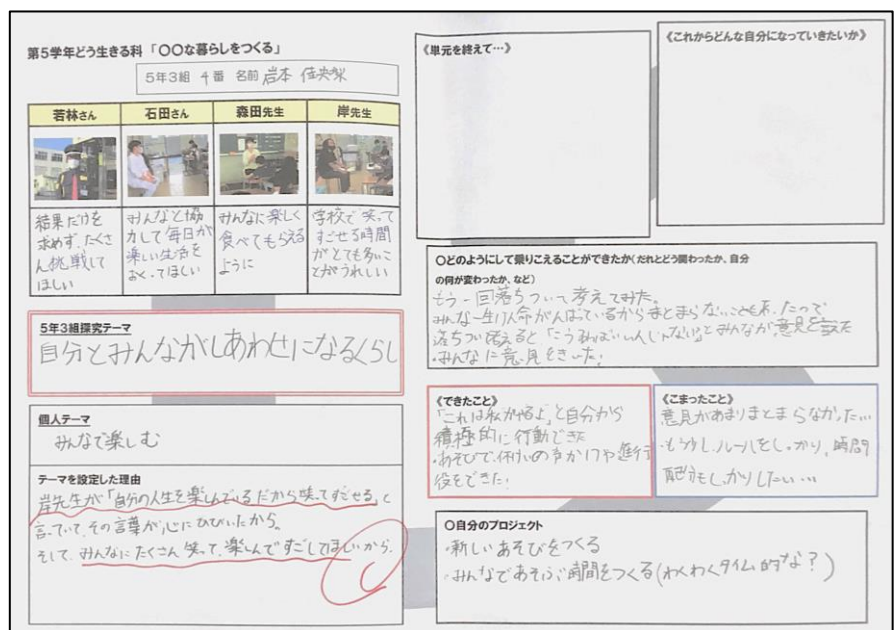 第5学年どう生きる科「〇〇な暮らしをつくる」
5年3組 4番 名前 岩本
若林さん
石田さん
森田先生
岸先生
結果だけを
求めず、たくさ
ん挑戦して
ほしい
みんなと協
力して毎日が
楽しい生活を
おくってほしい
みんなに楽しく
食べてもらえる
ように
学校で笑って
すごせる時間
がとても多いこ
とがうれしい
5年3組探究テーマ
自分とみんながしあわせになるくらし
個人テーマ
みんなで楽しむ
テーマを設定した理由
岸先生が「自分の人生を楽しんでいるだから笑ってすごせる」と
言っていて、その言葉が心にひびいたから。
そして、みんなにたくさん笑って、楽しんですごしてほしいから。
《単元を終えて…》
《これからどんな自分になっていきたいか》
〇どのようにして乗りこえることができたか(だれとどう関わったか、自分
の何が変わったか、など)
もう一回落ちついて考えてみた。
みんな一生けん命がんばっているからまとまらないことも
落ちついて考えると「こうすればいいんじゃない」とみんなが意見を
・みんなに意見をきいた!
《できたこと》
「これは私がやるよ」と自分から
積極的に行動できた
・あそびで休けいの声かけや進行
役をできた!
《こまったこと》
意見があまりまとまらなかった…
・もう少しルールをしっかり、時間
配分もしっかりしたい…
〇自分のプロジェクト
・新しいあそびをつくる
・みんなであそぶ時間をつくる(わくわくタイム的な?)